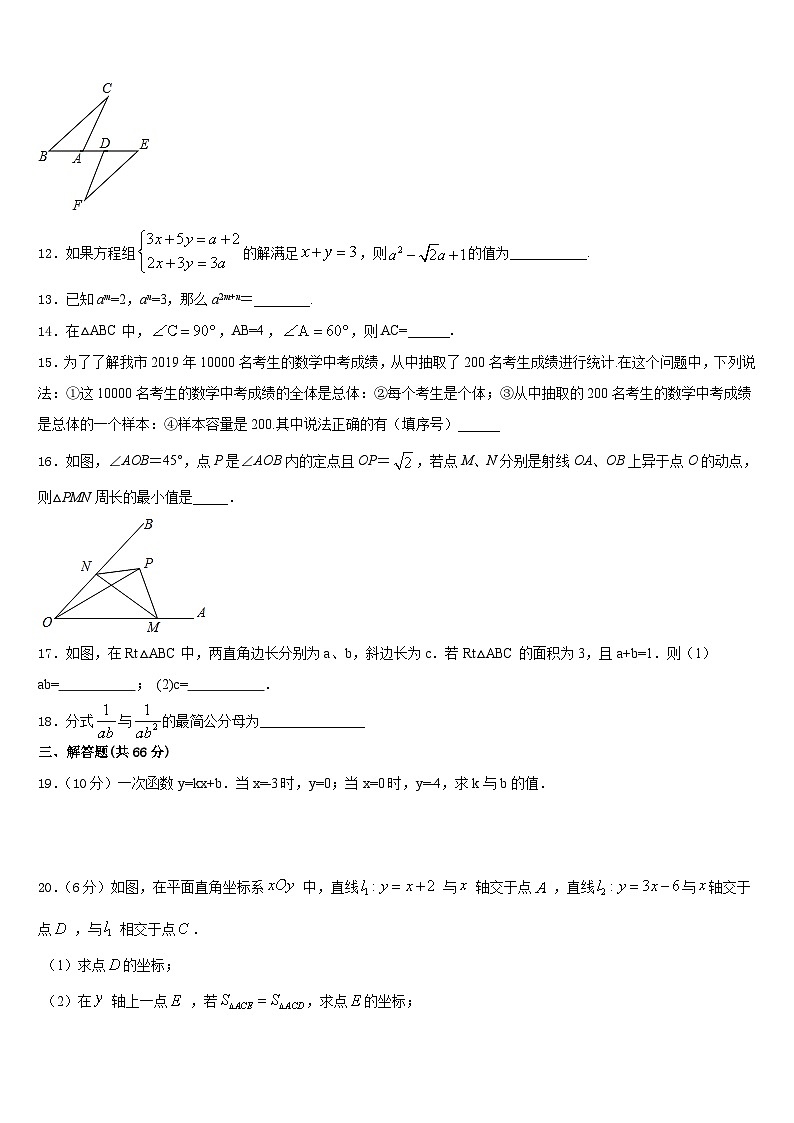 C
B A D E
F
12．如果方程组{3x+5y=a+2 2x+3y=3a 的解满足x+y=3，则a²−√2a+1的值为___________.
13．已知aᵐ=2，aⁿ=3，那么a²ᵐ⁺ⁿ＝________.
14．在△ABC 中，∠C=90°，AB=4，∠A=60°，则AC=______．
15．为了了解我市2019年10000名考生的数学中考成绩，从中抽取了200名考生成绩进行统计.在这个问题中，下列说
法：①这10000名考生的数学中考成绩的全体是总体：②每个考生是个体；③从中抽取的200名考生的数学中考成绩
是总体的一个样本：④样本容量是200.其中说法正确的有（填序号）______
16．如图，∠AOB＝45°，点P是∠AOB内的定点且OP＝√2，若点M、N分别是射线OA、OB上异于点O的动点，
则△PMN周长的最小值是_____．
B
N P
O M A
17．如图，在Rt△ABC中，两直角边长分别为a、b，斜边长为c．若Rt△ABC 的面积为3，且a+b=1．则（1）
ab=___________； (2)c=___________．
18．分式1/ab与1/ab²的最简公分母为_______________
三、解答题(共66分)
19．（10分）一次函数y=kx+b．当x=-3时，y=0；当x=0时，y=-4，求k与b的值．
20．（6分）如图，在平面直角坐标系xOy 中，直线l₁：y=x+2 与x 轴交于点A ，直线l₂：y=3x−6与x轴交于
点D ，与l₁ 相交于点C．
（1）求点D的坐标；
（2）在y 轴上一点E ，若S△ACE=S△ACD，求点E的坐标；